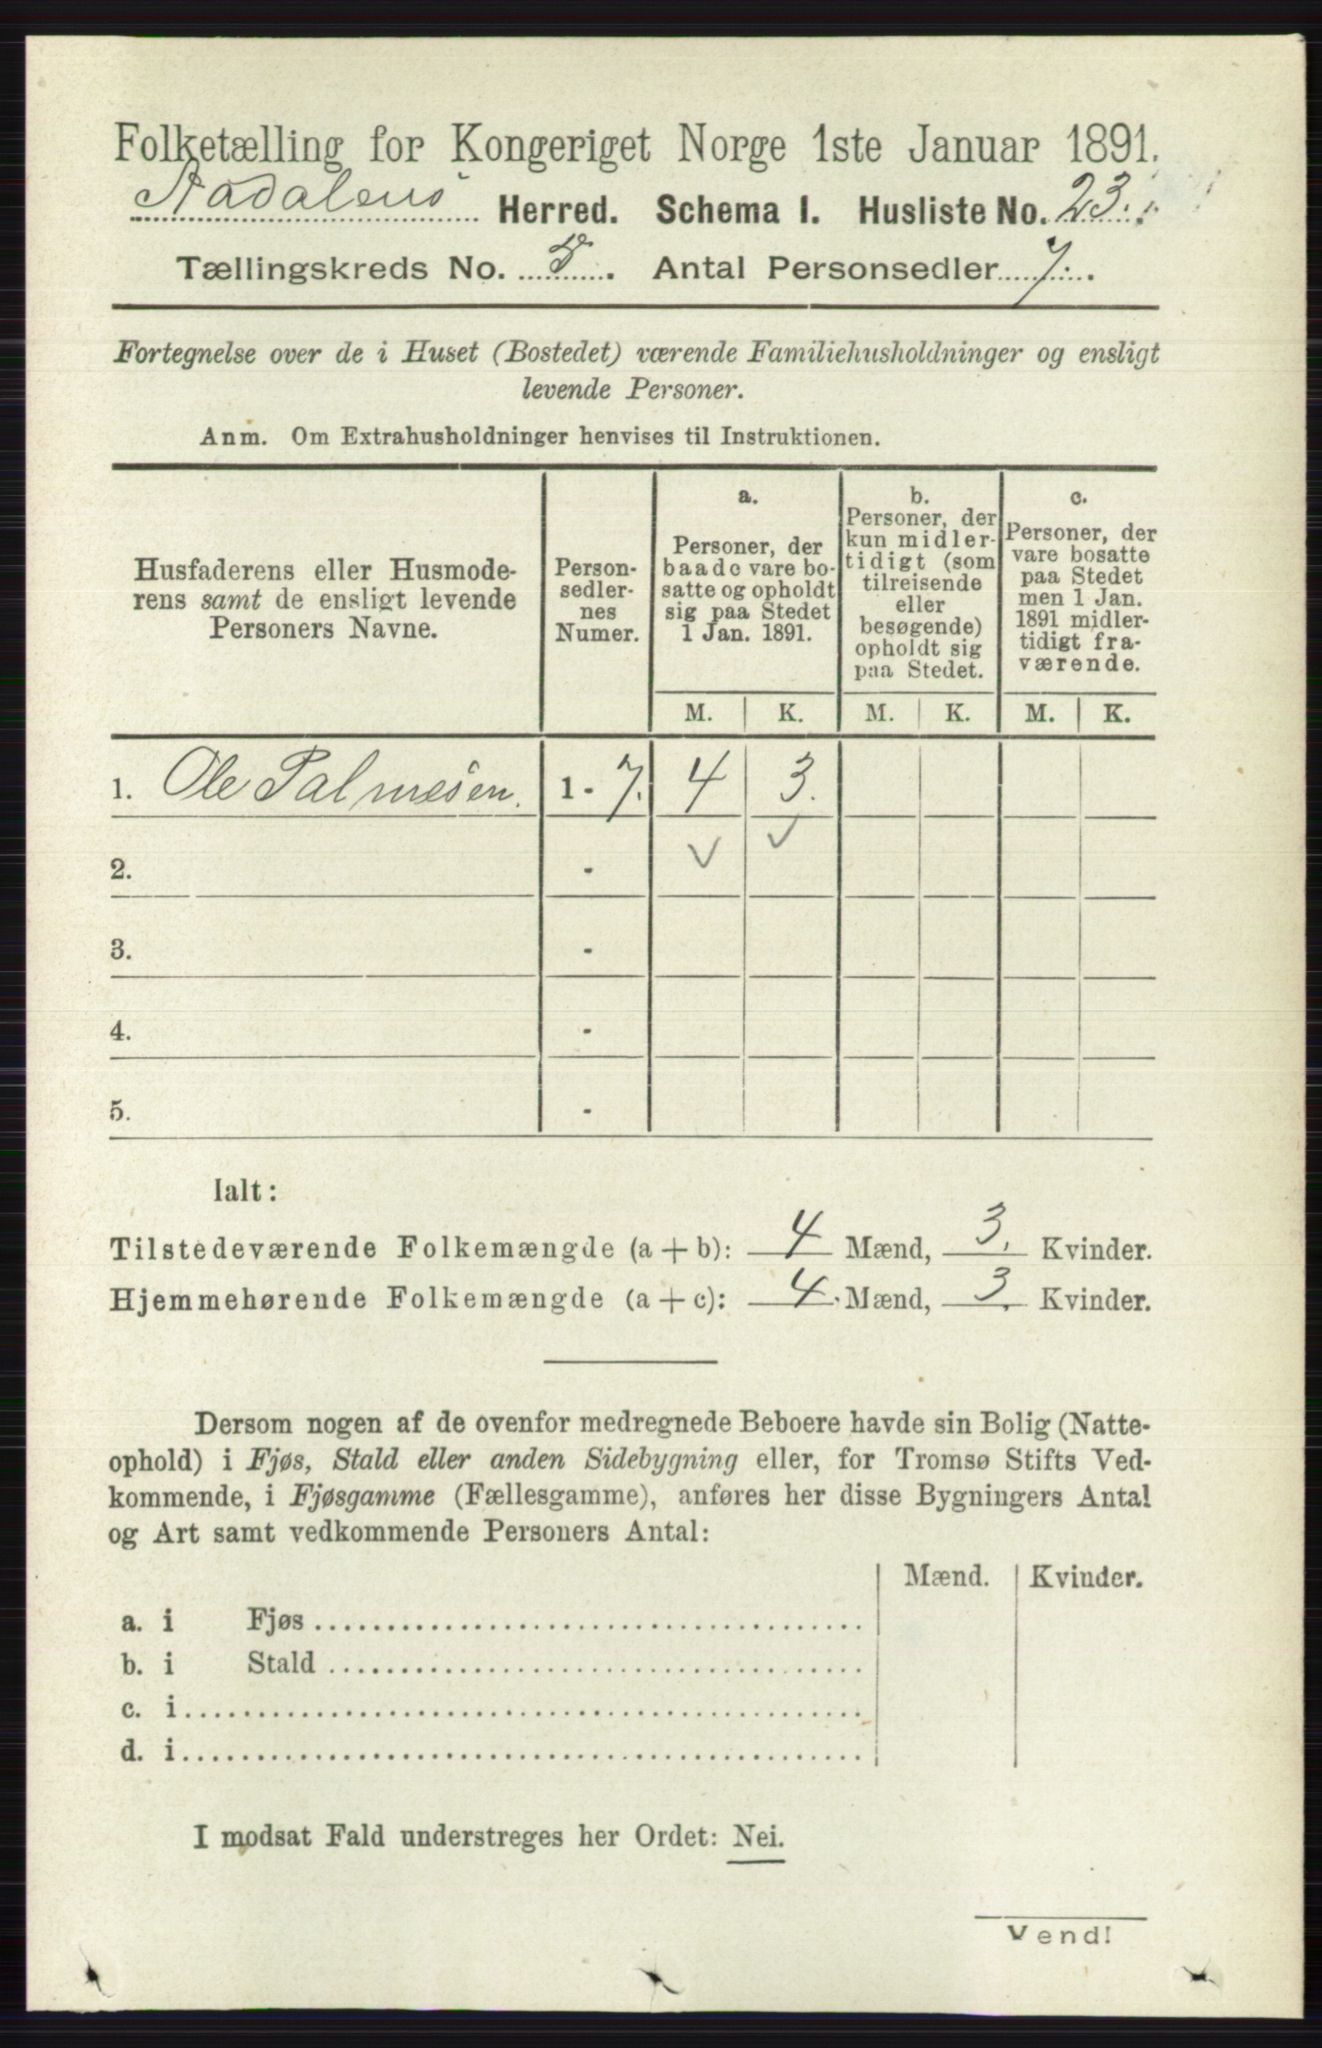 Folketælling for Kongeriget Norge 1ste Januar 1891.
Aadalens Herred. Schema I. Husliste No. 23.
Tællingskreds No. 5. Antal Personsedler 7.
Fortegnelse over de i Huset (Bostedet) værende Familiehusholdninger og ensligt
levende Personer.
Anm. Om Extrahusholdninger henvises til Instruktionen.
Husfaderens eller Husmode-
rens samt de ensligt levende
Personers Navne.
Person-
sedler-
nes
Numer.
a.
Personer, der
baade vare bo-
satte og opholdt
sig paa Stedet
1 Jan. 1891.
b.
Personer, der
kun midler-
tidigt (som
tilreisende
eller
besøgende)
opholdt sig
paa Stedet.
c.
Personer, der
vare bosatte
paa Stedet
men 1 Jan.
1891 midler-
tidigt fra-
værende.
M. K. M. K. M. K.
1. Ole Palmesen. 1 - 7. 4 3.
2. -
3. -
4. -
5. -
Ialt:
Tilstedeværende Folkemængde (a + b): 4 Mænd, 3. Kvinder.
Hjemmehørende Folkemængde (a + c): 4. Mænd, 3. Kvinder.
Dersom nogen af de ovenfor medregnede Beboere havde sin Bolig (Natte-
ophold) i Fjøs, Stald eller anden Sidebygning eller, for Tromsø Stifts Ved-
kommende, i Fjøsgamme (Fællesgamme), anføres her disse Bygningers Antal
og Art samt vedkommende Personers Antal:
Mænd. Kvinder.
a. i Fjøs
b. i Stald
c. i
d. i
I modsat Fald understreges her Ordet: Nei.
Vend!